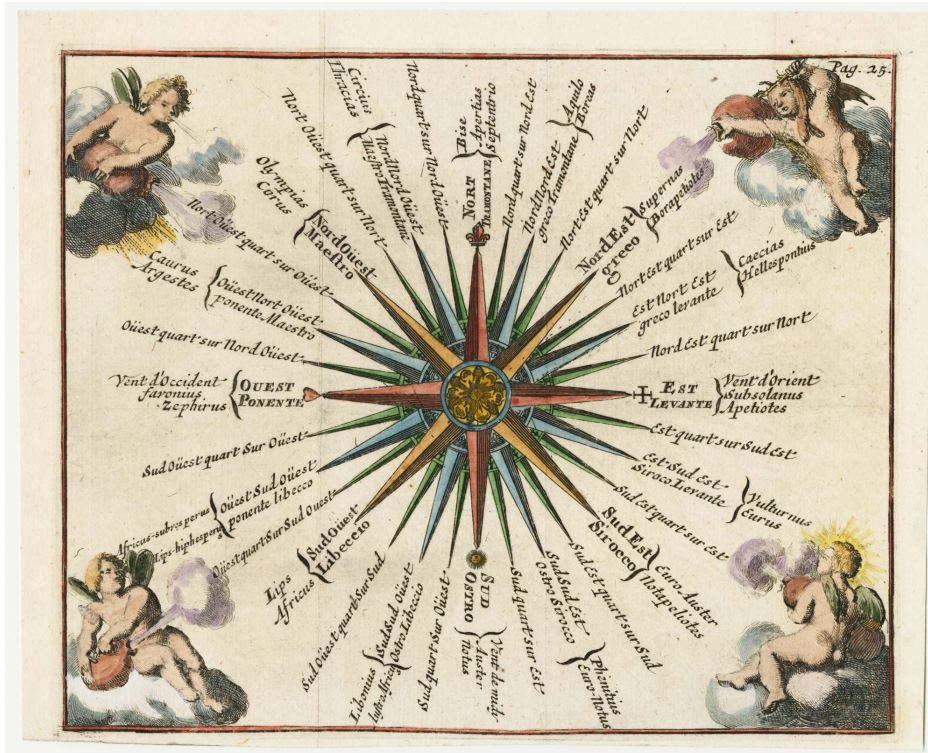 Pag. 25.
NORT
TRAMONTANE
Bise
Apertias
Septentrio
Nord quart sur Nord Est
Nord Nord Est
greco Tramontane
Aquilo
Boreas
Nort Est quart sur Nort
Nord Est
greco
Supernas
Borapeliotes
Nort Est quart sur Est
Est Nort Est
greco levante
Caecias
Hellespontius
Nord Est quart sur Nort
EST
LEVANTE
Vent d'Orient
Subsolanus
Apeliotes
Est quart sur Sud Est
Est Sud Est
Siroco Levante
Vulturnus
Eurus
Sud Est quart sur Est
Sud Est
Sirocco
Euro Auster
Notapeliotes
Sud Est quart sur Sud
Sud Sud Est
Ostro Sirocco
Phoenitius
Euro-Notus
Sud quart sur Est
SUD
OSTRO
Vent de midi
Auster
Notus
Sud quart Sur Oüest
Sud Sud Oüest
Ostro Libeccio
Libonius
Sud Oüest quart Sur Sud
Sud Oüest
Libeccio
Lips
Africus
Oüest quart Sur Sud Ouest
Oüest Sud Oüest
ponente libecco
Sud Oüest quart Sur Oüest
OUEST
PONENTE
Vent d'Occident
faronius
Zephirus
Oüest quart sur Nord Oüest
Oüest Nort Oüest
ponente Maestro
Caurus
Argestes
Nort Oüest quart sur Oüest
Nord Oüest
Maestro
Olympias
Corus
Nort Oüest quart sur Nort
Nord Nord Oüest
Maestro Tramontane
Circius
Thracias
Nord quart sur Nord Oüest